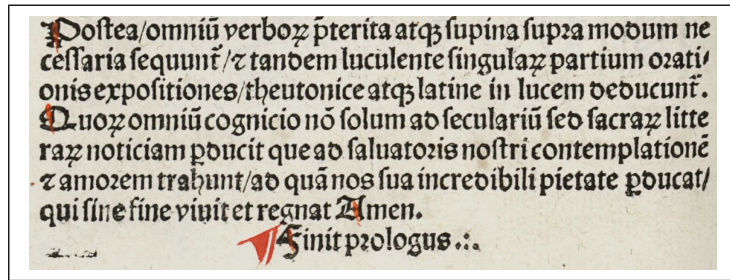 Postea/omniū verboꝝ p̄terita atqꝫ ſupina ſupra modum ne
ceſſaria ſequunt᷑/⁊ tandem luculente ſingulaꝝ partium orati⸗
onis expoſitiones/theutonice atqꝫ latine in lucem deducunt᷑.
Quoꝝ omniū cognicio nō ſolum ad ſeculariū ſed ſacraꝝ litte
raꝝ noticiam ꝑducit que ad ſaluatoris noſtri contemplationē
⁊ amorem trahunt/ad quā nos ſua incredibili pietate ꝑducat/
qui ſine fine viuit et regnat Amen.
¶ Finit prologus .:.